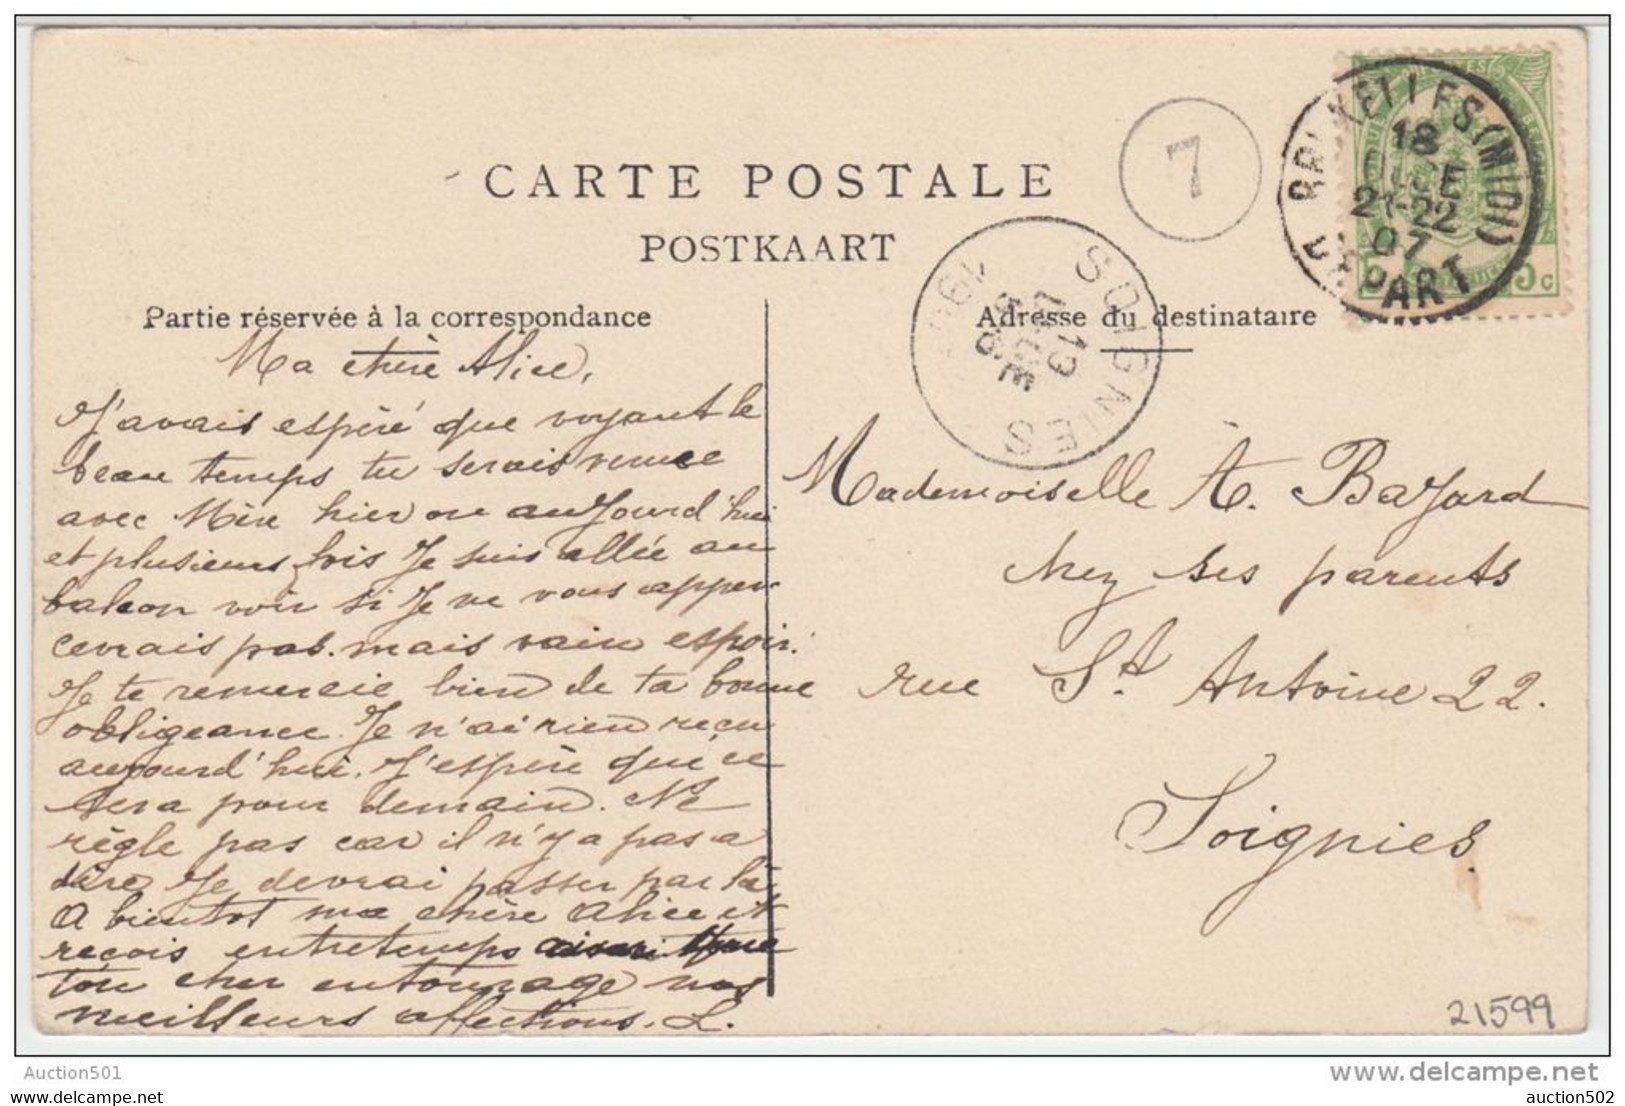 CARTE POSTALE
POSTKAART
7
BRUXELLES (MIDI)
18
DECE
21-22
07
DEPART
5c
SOIGNIES
Partie réservée à la correspondance
Ma chère Alice,
J'avais espéré que voyant le
beau temps tu serais venue
avec Mère hier ou aujourd'hui
et plusieurs fois je suis allée au
balcon voir si je ne vous apper
cevrais pas. mais vain espoir.
Je te remercie bien de ta bonne
obligeance. Je n'ai rien reçu
aujourd'hui. J'espère que ce
sera pour demain. Ne
règle pas car il n'y a pas a
dire je devrai passer par là
A bientot ma chère Alice et
reçois entretemps
ton cher entourage nos
meilleurs affections. L.
Adresse du destinataire
Mademoiselle A. Bayard
chez ses parents
rue St Antoine 22.
Soignies
21599
Auction501
www.delcampe.net
auction502